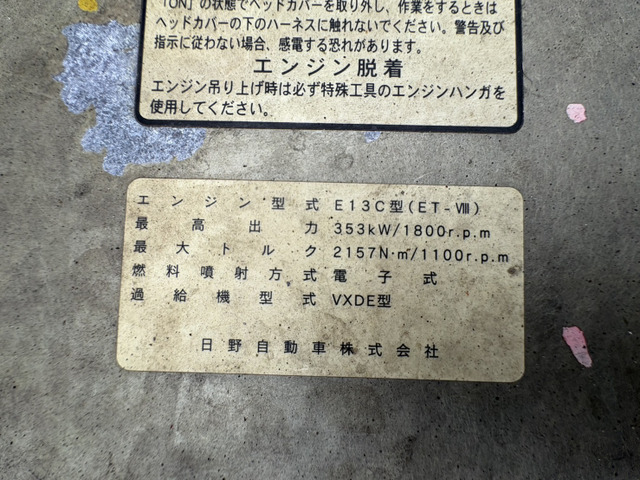 「ON」の状態でヘッドカバーを取り外し、作業をするときは
ヘッドカバーの下のハーネスに触れないでください。警告及び
指示に従わない場合、感電する恐れがあります。
エンジン脱着
エンジン吊り上げ時は必ず特殊工具のエンジンハンガを
使用してください。
エンジン型式 E13C型(ET-Ⅷ)
最高出力 353kW/1800r.p.m
最大トルク 2157N・m/1100r.p.m
燃料噴射方式 電子式
過給機型式 VXDE型
日野自動車株式会社